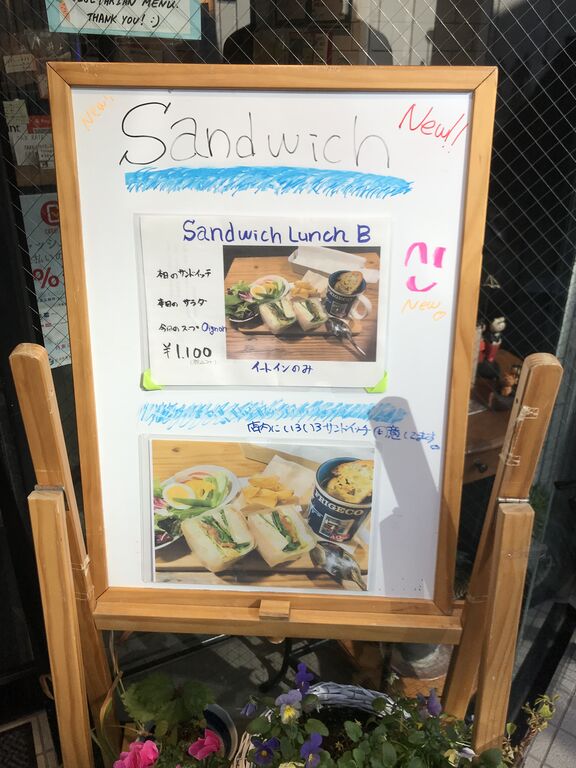 VEGETARIAN MENU.
THANK YOU! :)
New!
Sandwich
New!!
Sandwich Lunch B
本日のサンドイッチ
本日のサラダ
今日のスープ Oignon
¥1.100
イートインのみ
New
店内にいろいろサンドイッチ
FRIGECO
%